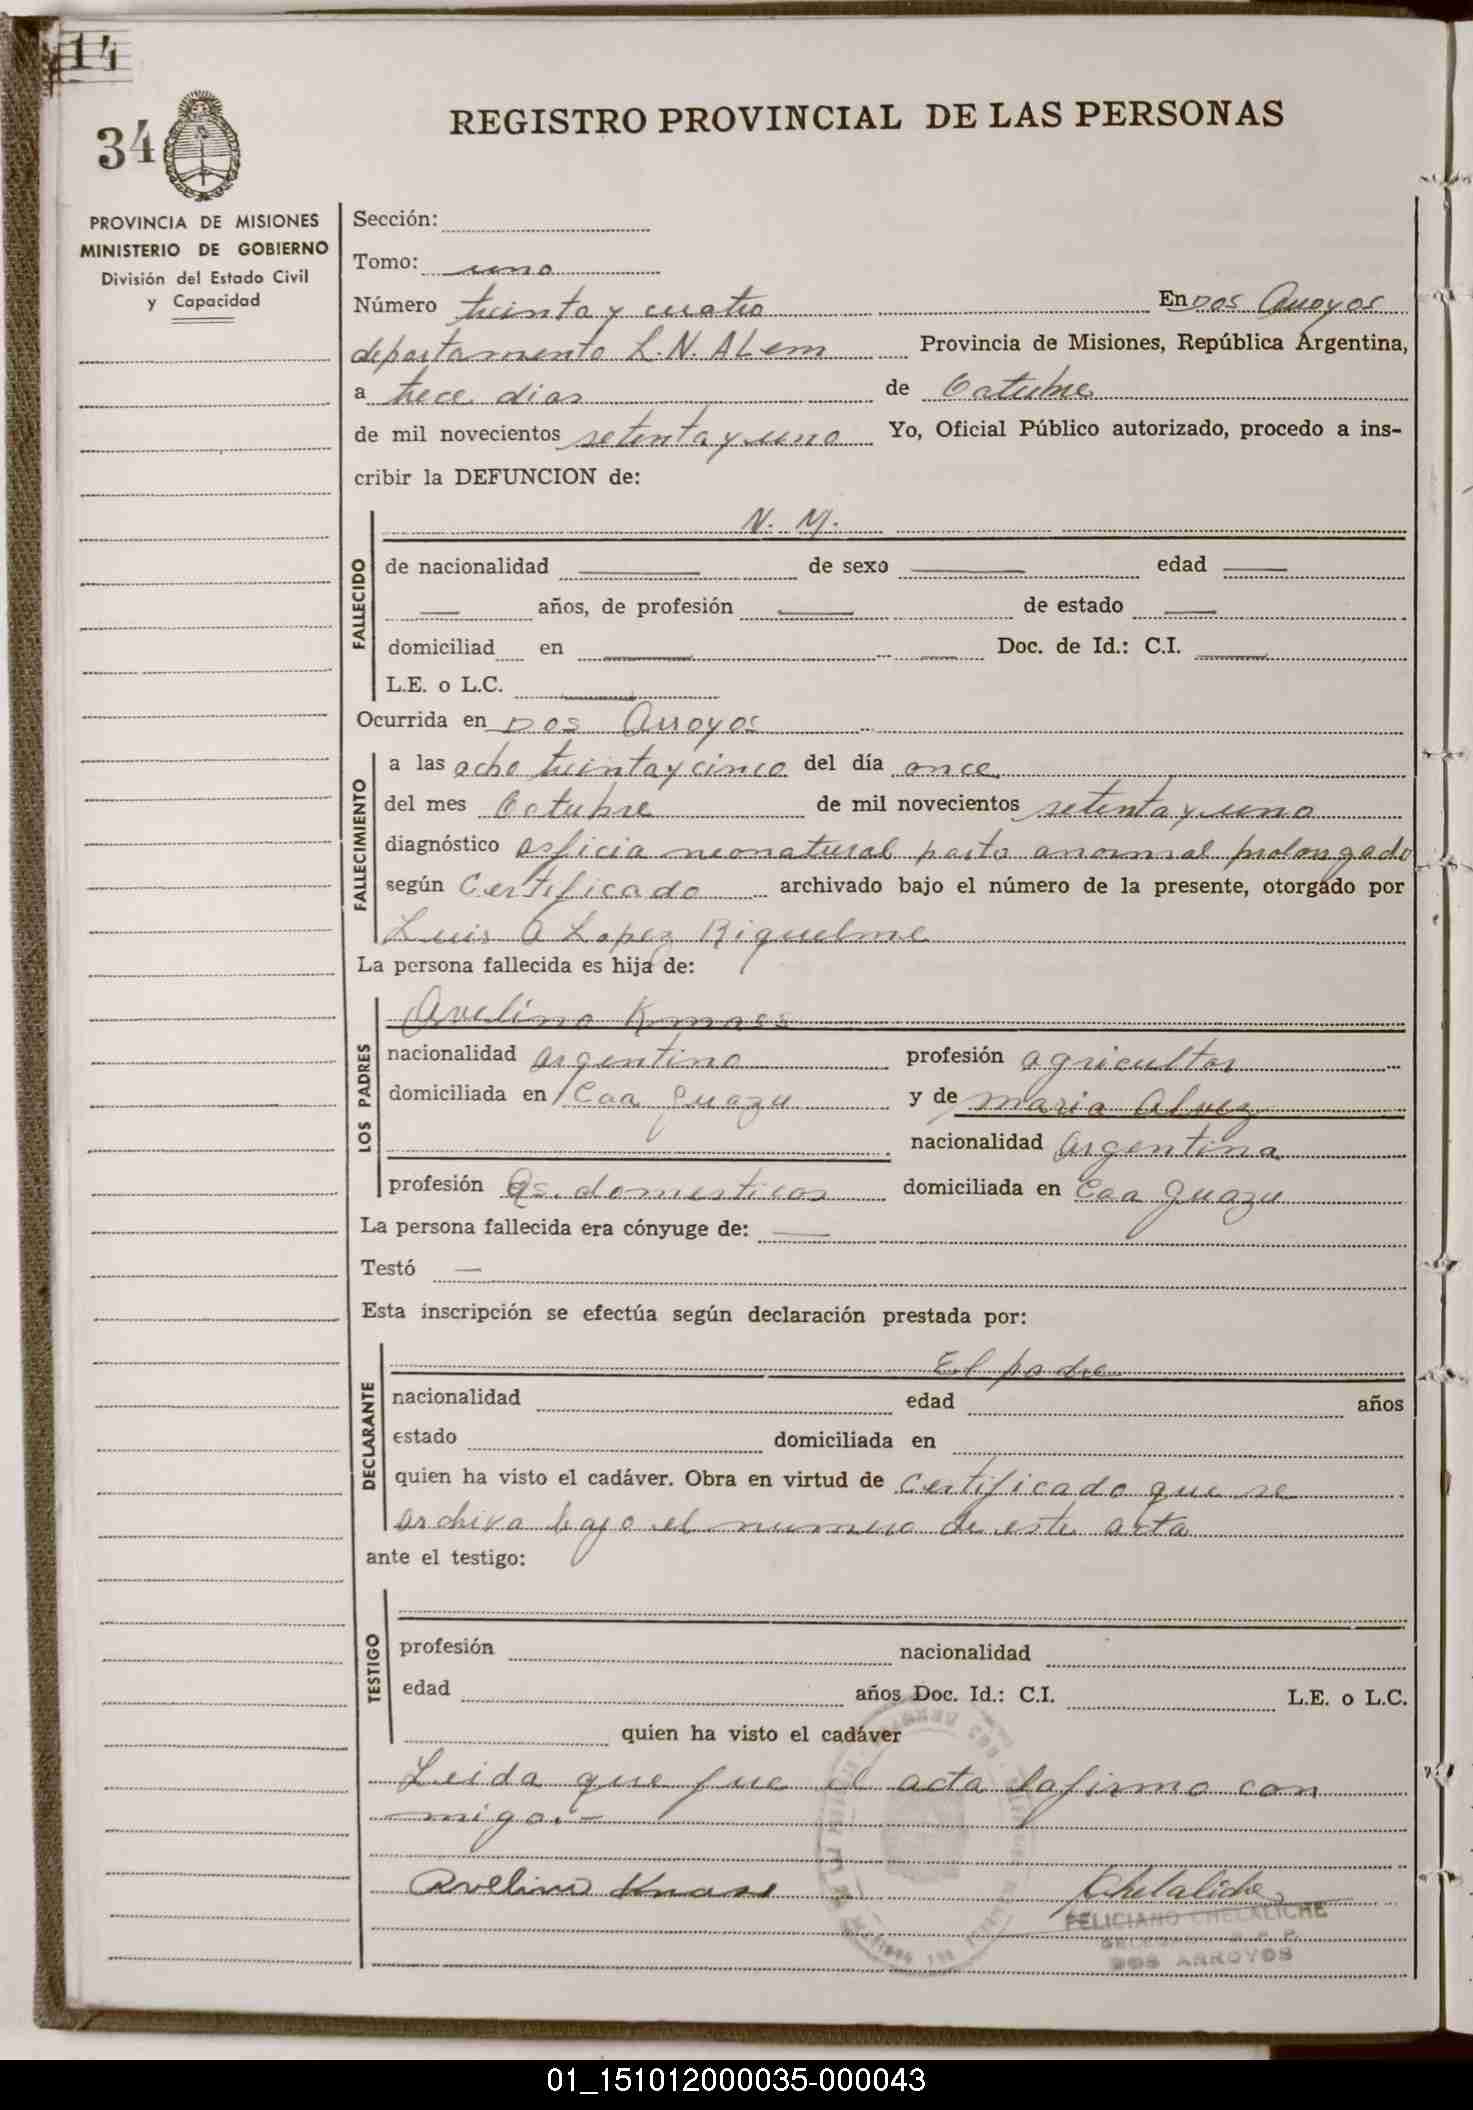 14
34
REGISTRO PROVINCIAL DE LAS PERSONAS
PROVINCIA DE MISIONES
MINISTERIO DE GOBIERNO
División del Estado Civil
y Capacidad
Sección:
Tomo: uno
Número treinta y cuatro En Dos Arroyos
departamento L.N. ALem Provincia de Misiones, República Argentina,
a trece dias de Octubre
de mil novecientos setenta y uno Yo, Oficial Público autorizado, procedo a ins-
cribir la DEFUNCION de:
N. N.
FALLECIDO
de nacionalidad — de sexo — edad —
— años, de profesión — de estado —
domiciliad en — — Doc. de Id.: C.I. —
L.E. o L.C. —
Ocurrida en Dos Arroyos
FALLECIMIENTO
a las ocho treinta y cinco del día once
del mes Octubre de mil novecientos setenta y uno
diagnóstico asficia neonatural parto anormal prolongado
según Certificado archivado bajo el número de la presente, otorgado por
Luis A Lopez Riquelme
La persona fallecida es hija de:
LOS PADRES
Avelino Knass
nacionalidad argentino profesión agricultor
domiciliada en Caa Guazu y de Maria Alvez
nacionalidad argentina
profesión Qs. domesticos domiciliada en Caa Guazu
La persona fallecida era cónyuge de: —
Testó —
Esta inscripción se efectúa según declaración prestada por:
El padre
DECLARANTE
nacionalidad edad años
estado domiciliada en
quien ha visto el cadáver. Obra en virtud de certificado que se
archiva bajo el numero de este acta
ante el testigo:
TESTIGO
profesión nacionalidad
edad años Doc. Id.: C.I. L.E. o L.C.
quien ha visto el cadáver
Leida que fue el acta lafirma con
migo.-
Avelino Knass Chelaliche
FELICIANO CHELALICHE
DOS ARROYOS
01_151012000035-000043